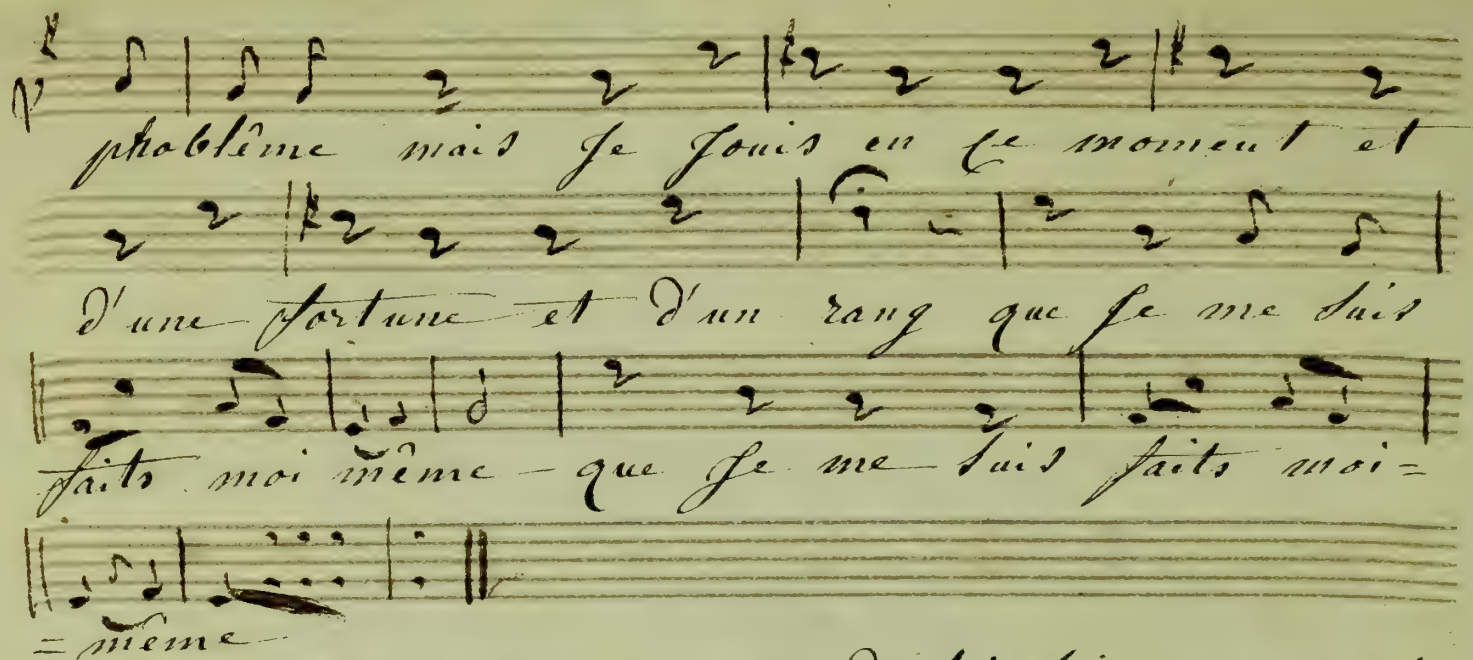 phoblême mais Je Jouis en ce moment et
d'une fortune et d'un rang que Je me suis
faits moi même - que Je me suis faits moi=
=même